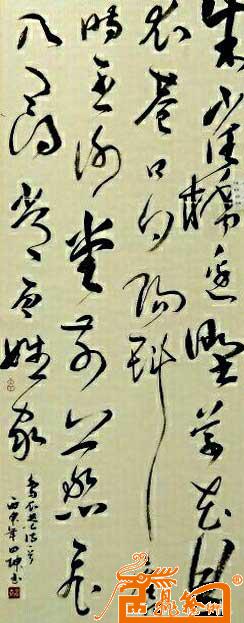 朱雀橋邊野草花烏
衣巷口夕陽斜舊
時王謝堂前燕飛
入尋常百姓家
烏衣巷詩一首